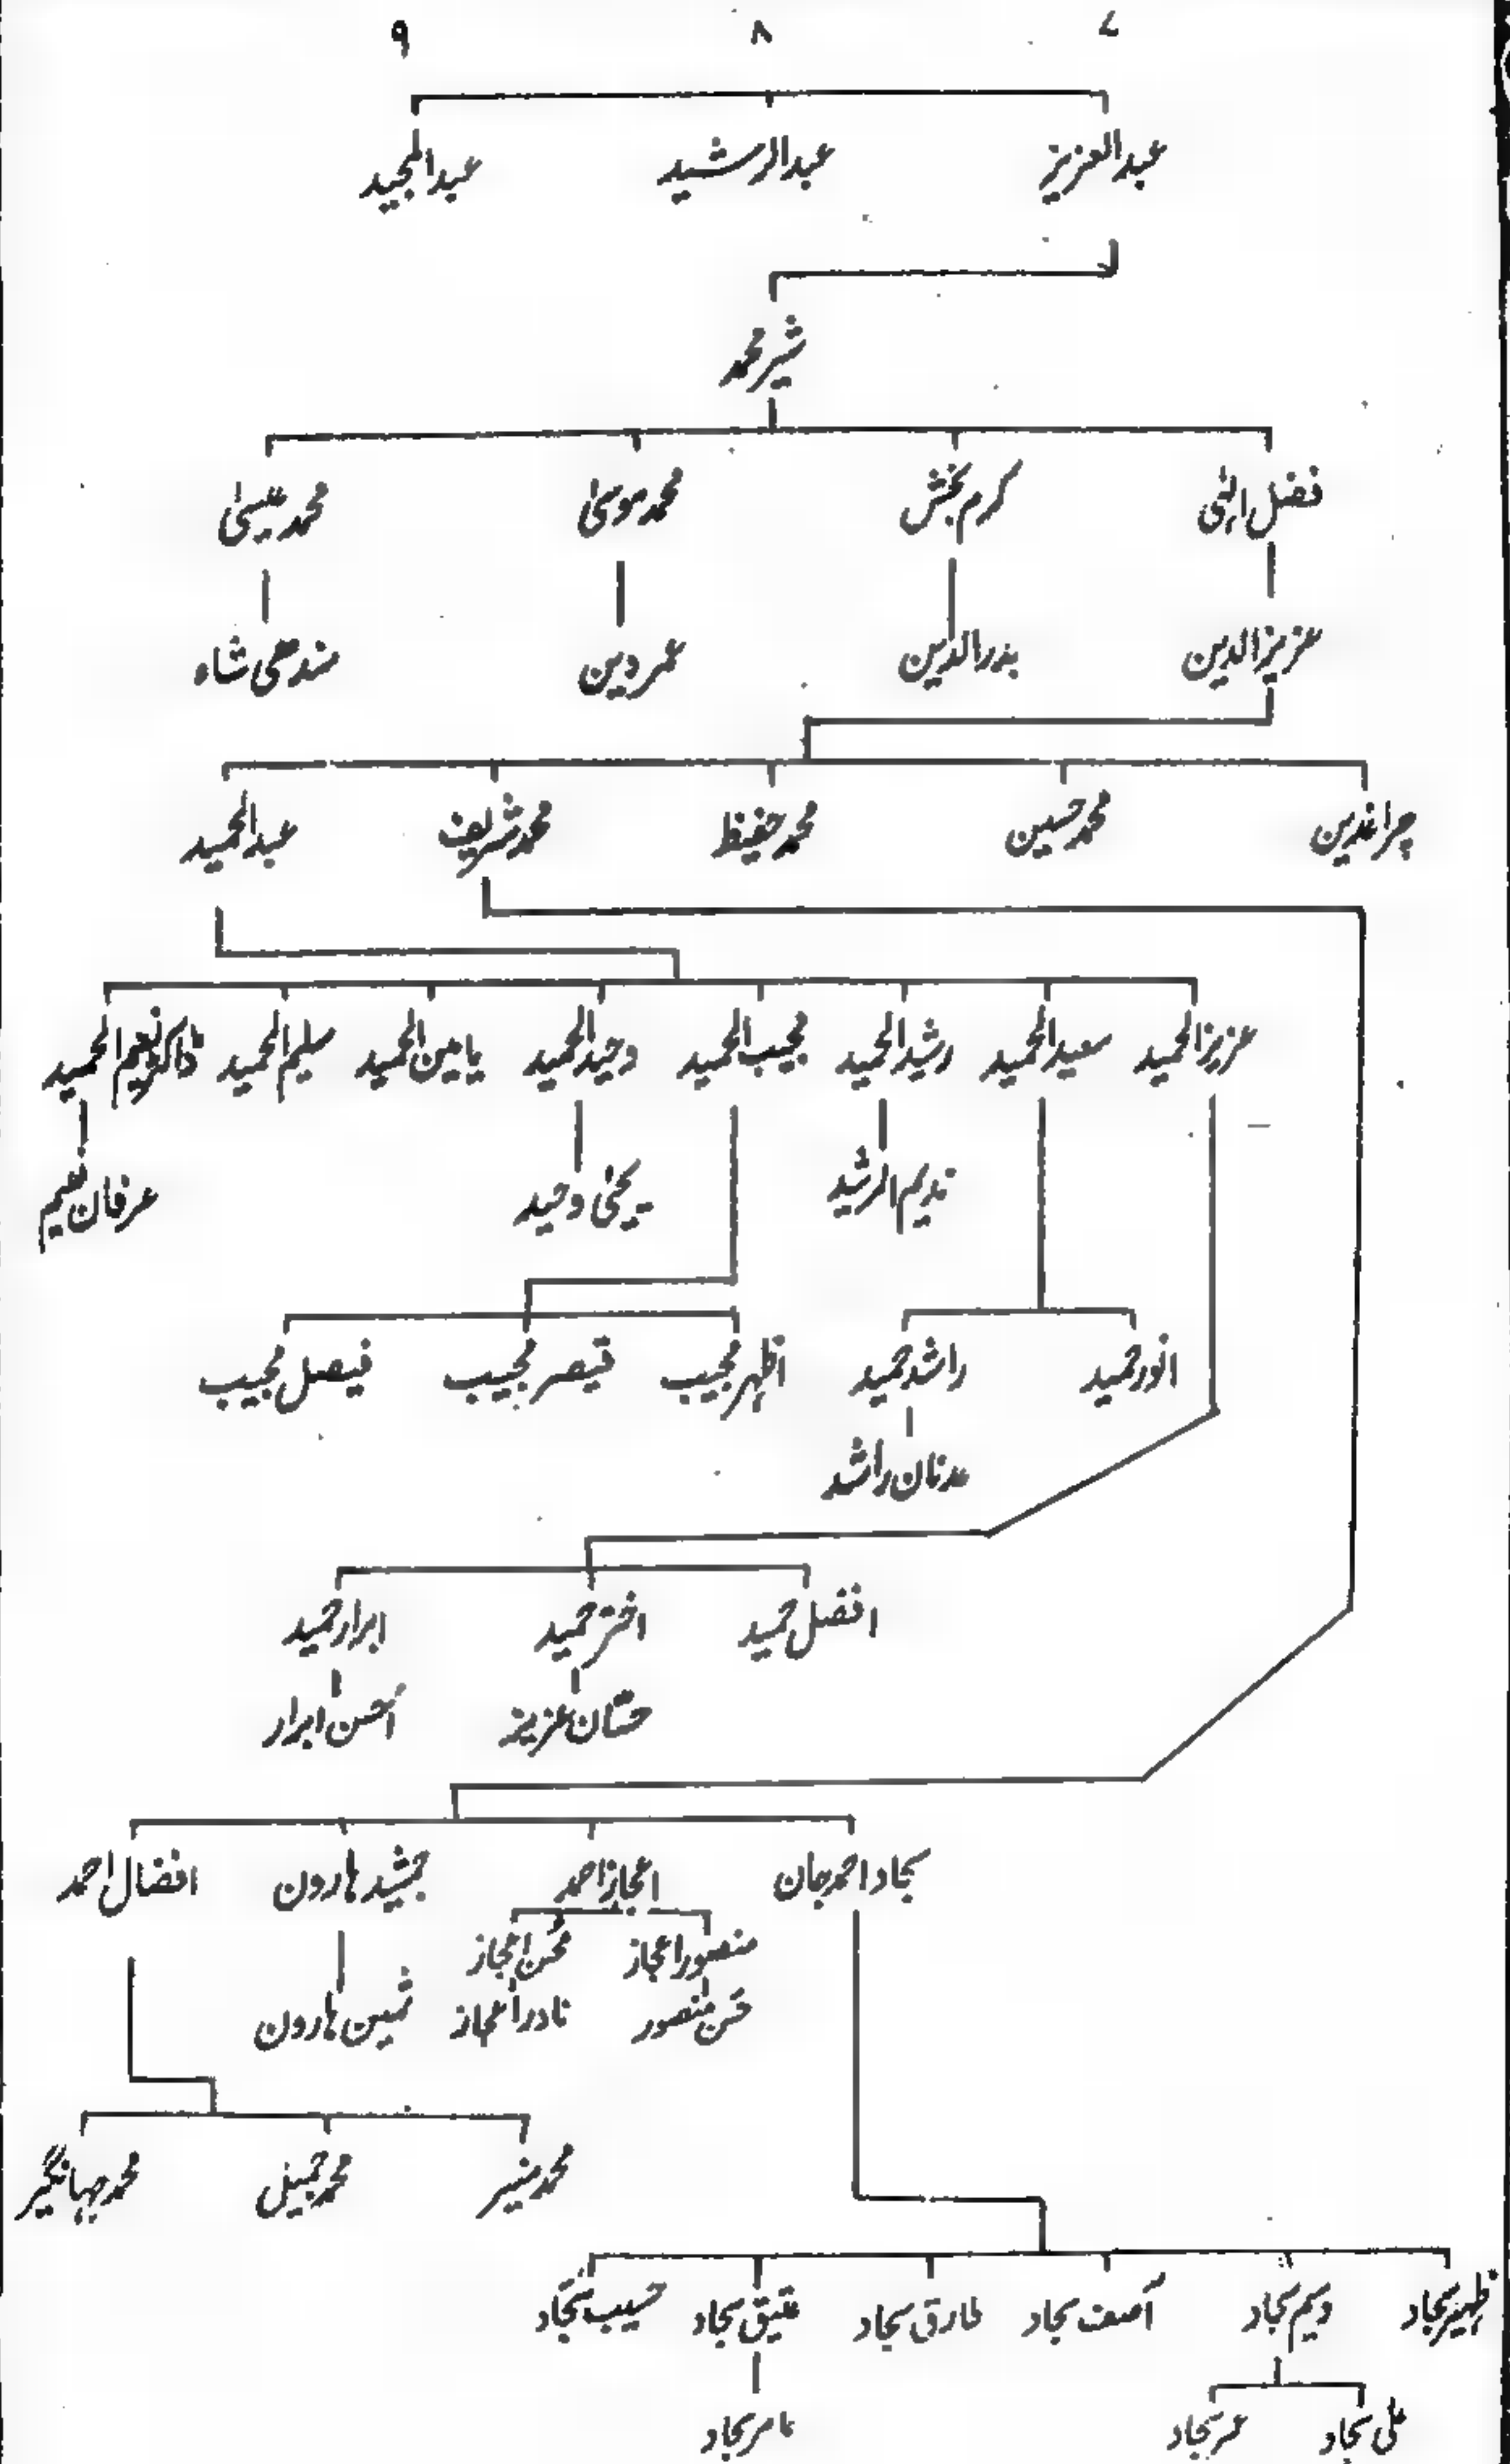 ۷ ۸ ۹
عبدالعزیز عبدالرشید عبدالمجید
شیر محمد
فضل الٰہی کرم بخش محمد موسیٰ محمد عیسیٰ
عزیز الدین بدرالدین عمر دین سندھی شاہ
چراغدین محمد حسین محمد حفیظ محمد شریف عبدالحمید
عزیز الحمید سعید الحمید رشید الحمید مجیب الحمید وحید الحمید یامین الحمید سلیم الحمید ڈاکٹر نعیم الحمید
ندیم الرشید یحیٰی وحید عرفان نعیم
انور حمید راشد حمید اظہر مجیب قیصر مجیب فیصل مجیب
عدنان راشد
افضل حمید اختر حمید ابرار حمید
حسّان عزیز اَحسن ابرار
سجاد احمد جان اعجاز احمد جمشید ہارون افضال احمد
منصور اعجاز محسن اعجاز
حسن منصور نادر اعجاز ثمین ہارون
محمد منیر محمد جمیل محمد جہانگیر
ظہیر سجاد وسیم سجاد آصف سجاد طارق سجاد عتیق سجاد حسیب سجاد
علی سجاد عمر سجاد عامر سجاد